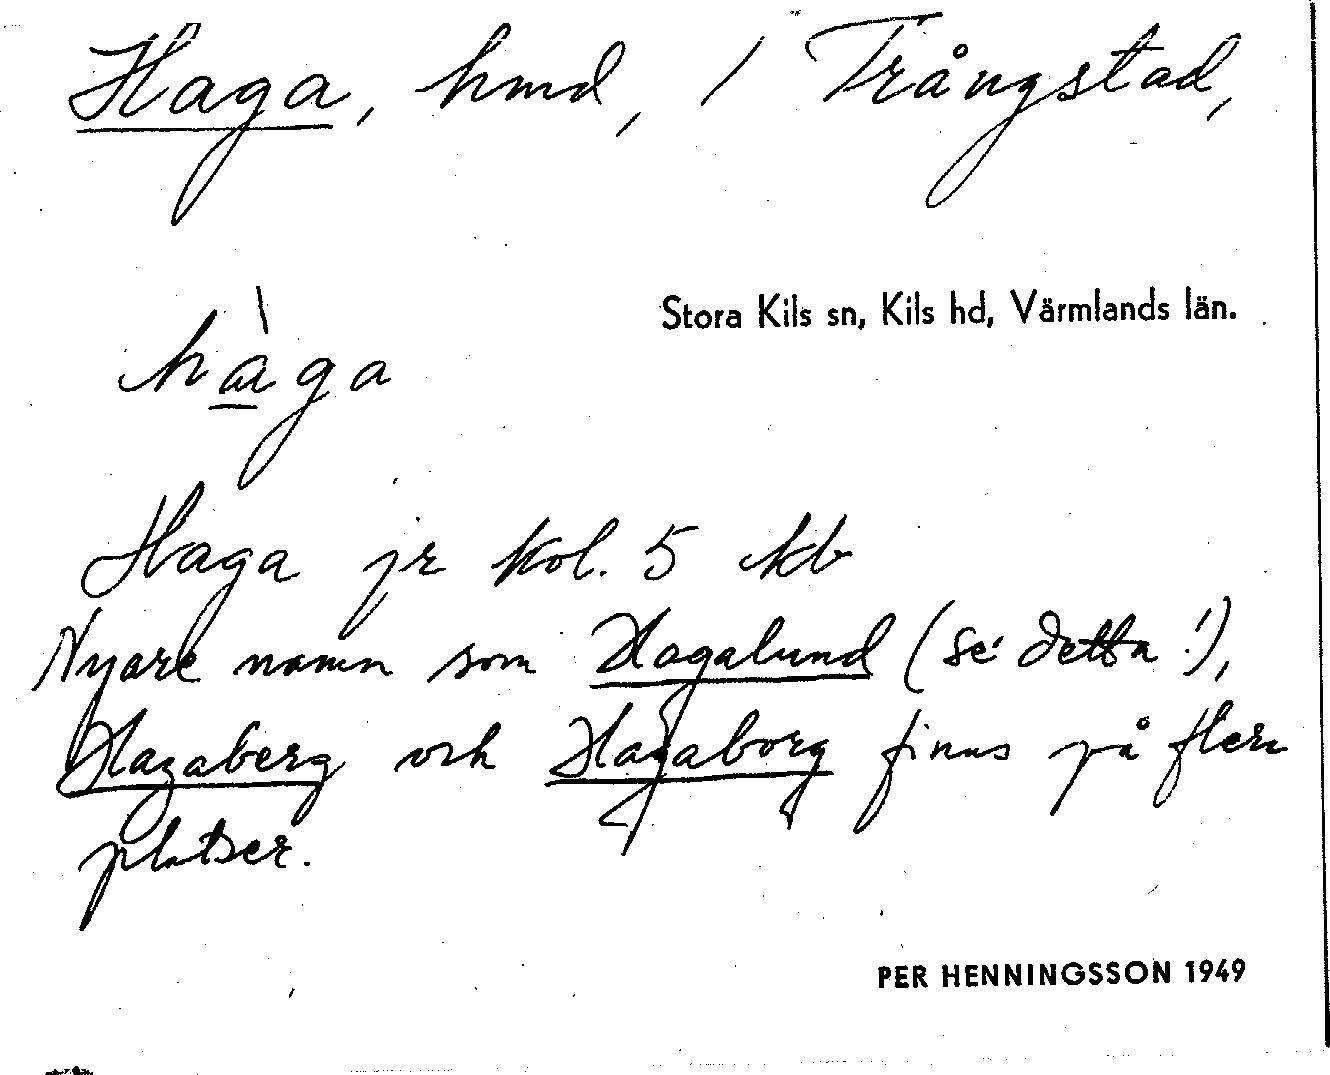 Haga, hmd, 1 Trångstad,
Stora Kils sn, Kils hd, Värmlands län.
hàga
Haga jr kol. 5 kb
Nyare namn som Hagalund (se detta!),
Hagaberg och Hagaborg finns på flera
platser.
PER HENNINGSSON 1949